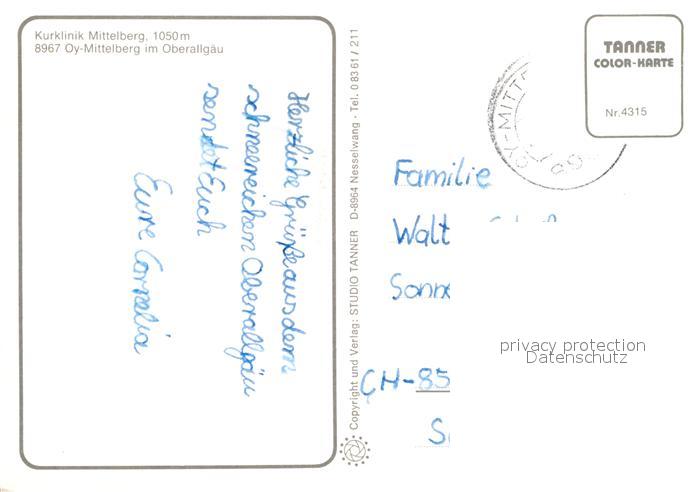 Kurklinik Mittelberg, 1050 m
8967 Oy-Mittelberg im Oberallgäu
Herzliche Grüße aus dem
schneereichen Oberallgäu
sendet Euch
Eure Cornelia
Copyright und Verlag: STUDIO TANNER D-8964 Nesselwang · Tel. 0 83 61 / 211
TANNER
COLOR-KARTE
Nr. 4315
OY-MITT
Familie
Walt
Sonn
CH-85
S
privacy protection
Datenschutz